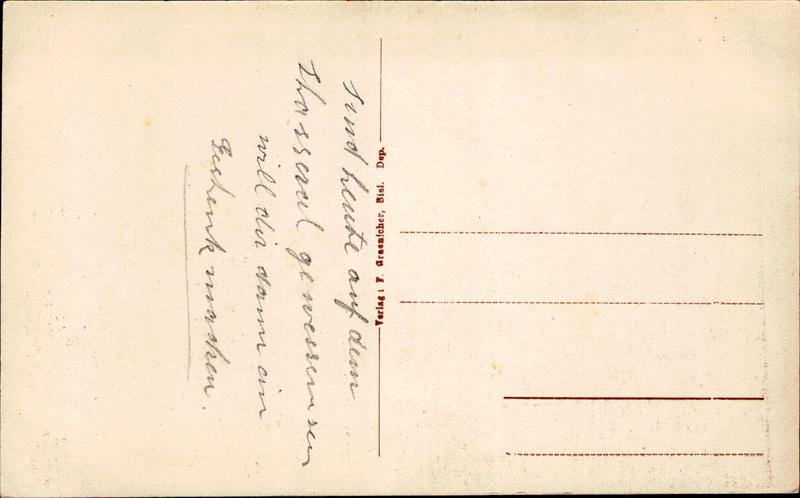 Sind heute auf dem
Chasseral gewessen
will dir dann ein
Geschenk machen.
Verlag: F. Graenicher, Biel. Dep.